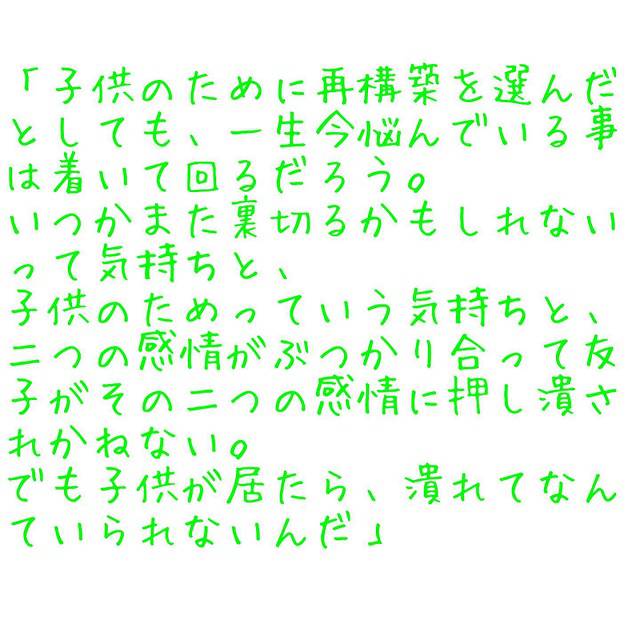 「子供のために再構築を選んだ
としても、一生今悩んでいる事
は着いて回るだろう。
いつかまた裏切るかもしれない
って気持ちと、
子供のためっていう気持ちと、
二つの感情がぶつかり合って友
子がその二つの感情に押し潰さ
れかねない。
でも子供が居たら、潰れてなん
ていられないんだ」